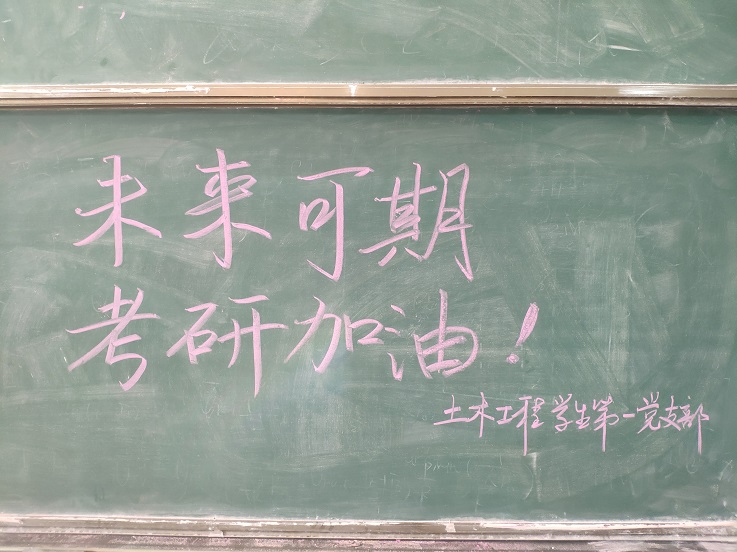 未来可期
考研加油！
土木工程学生第一党支部